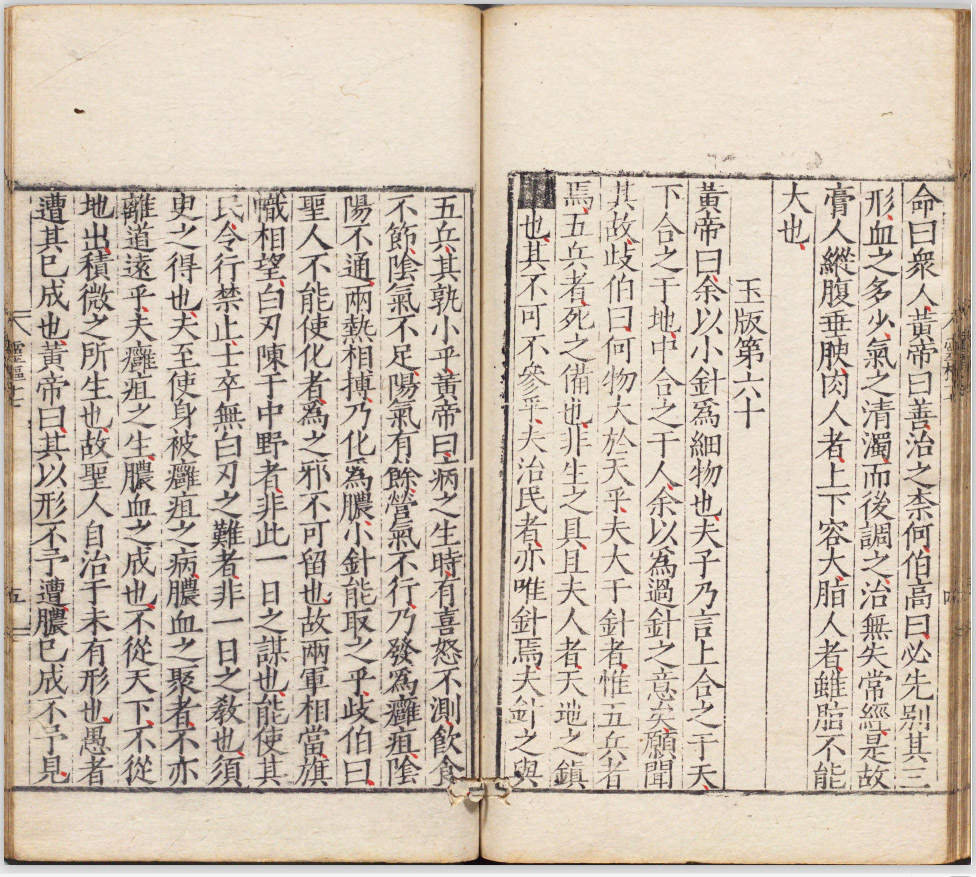 命曰衆人黃帝曰善治之柰何伯高曰必先別其三
形血之多少氣之清濁而後調之治無失常經是故
膏人縱腹垂腴肉人者上下容大脂人者雖脂不能
大也
玉版第六十
黃帝曰余以小針爲細物也夫子乃言上合之于天
下合之于地中合之于人余以爲過針之意矣願聞
其故歧伯曰何物大於天乎夫大于針者惟五兵者
焉五兵者死之備也非生之具且夫人者天地之鎮
也其不可不參乎夫治民者亦唯針焉夫針之與
五兵其孰小乎黃帝曰病之生時有喜怒不測飲食
不節陰氣不足陽氣有餘營氣不行乃發爲癰疽陰
陽不通兩熱相搏乃化爲膿小針能取之乎歧伯曰
聖人不能使化者爲之邪不可留也故兩軍相當旗
幟相望白刃陳于中野者非此一日之謀也能使其
民令行禁止士卒無白刃之難者非一日之教也須
臾之得也夫至使身被癰疽之病膿血之聚者不亦
離道遠乎夫癰疽之生膿血之成也不從天下不從
地出積微之所生也故聖人自治于未有形也愚者
遭其已成也黃帝曰其以形不予遭膿已成不予見
五